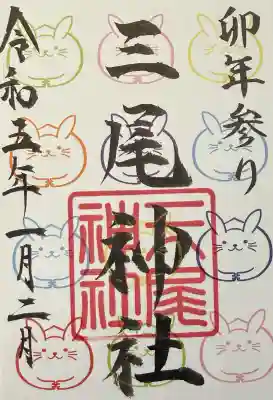 卯年参り
三尾神社
三尾神社
令和五年一月二日